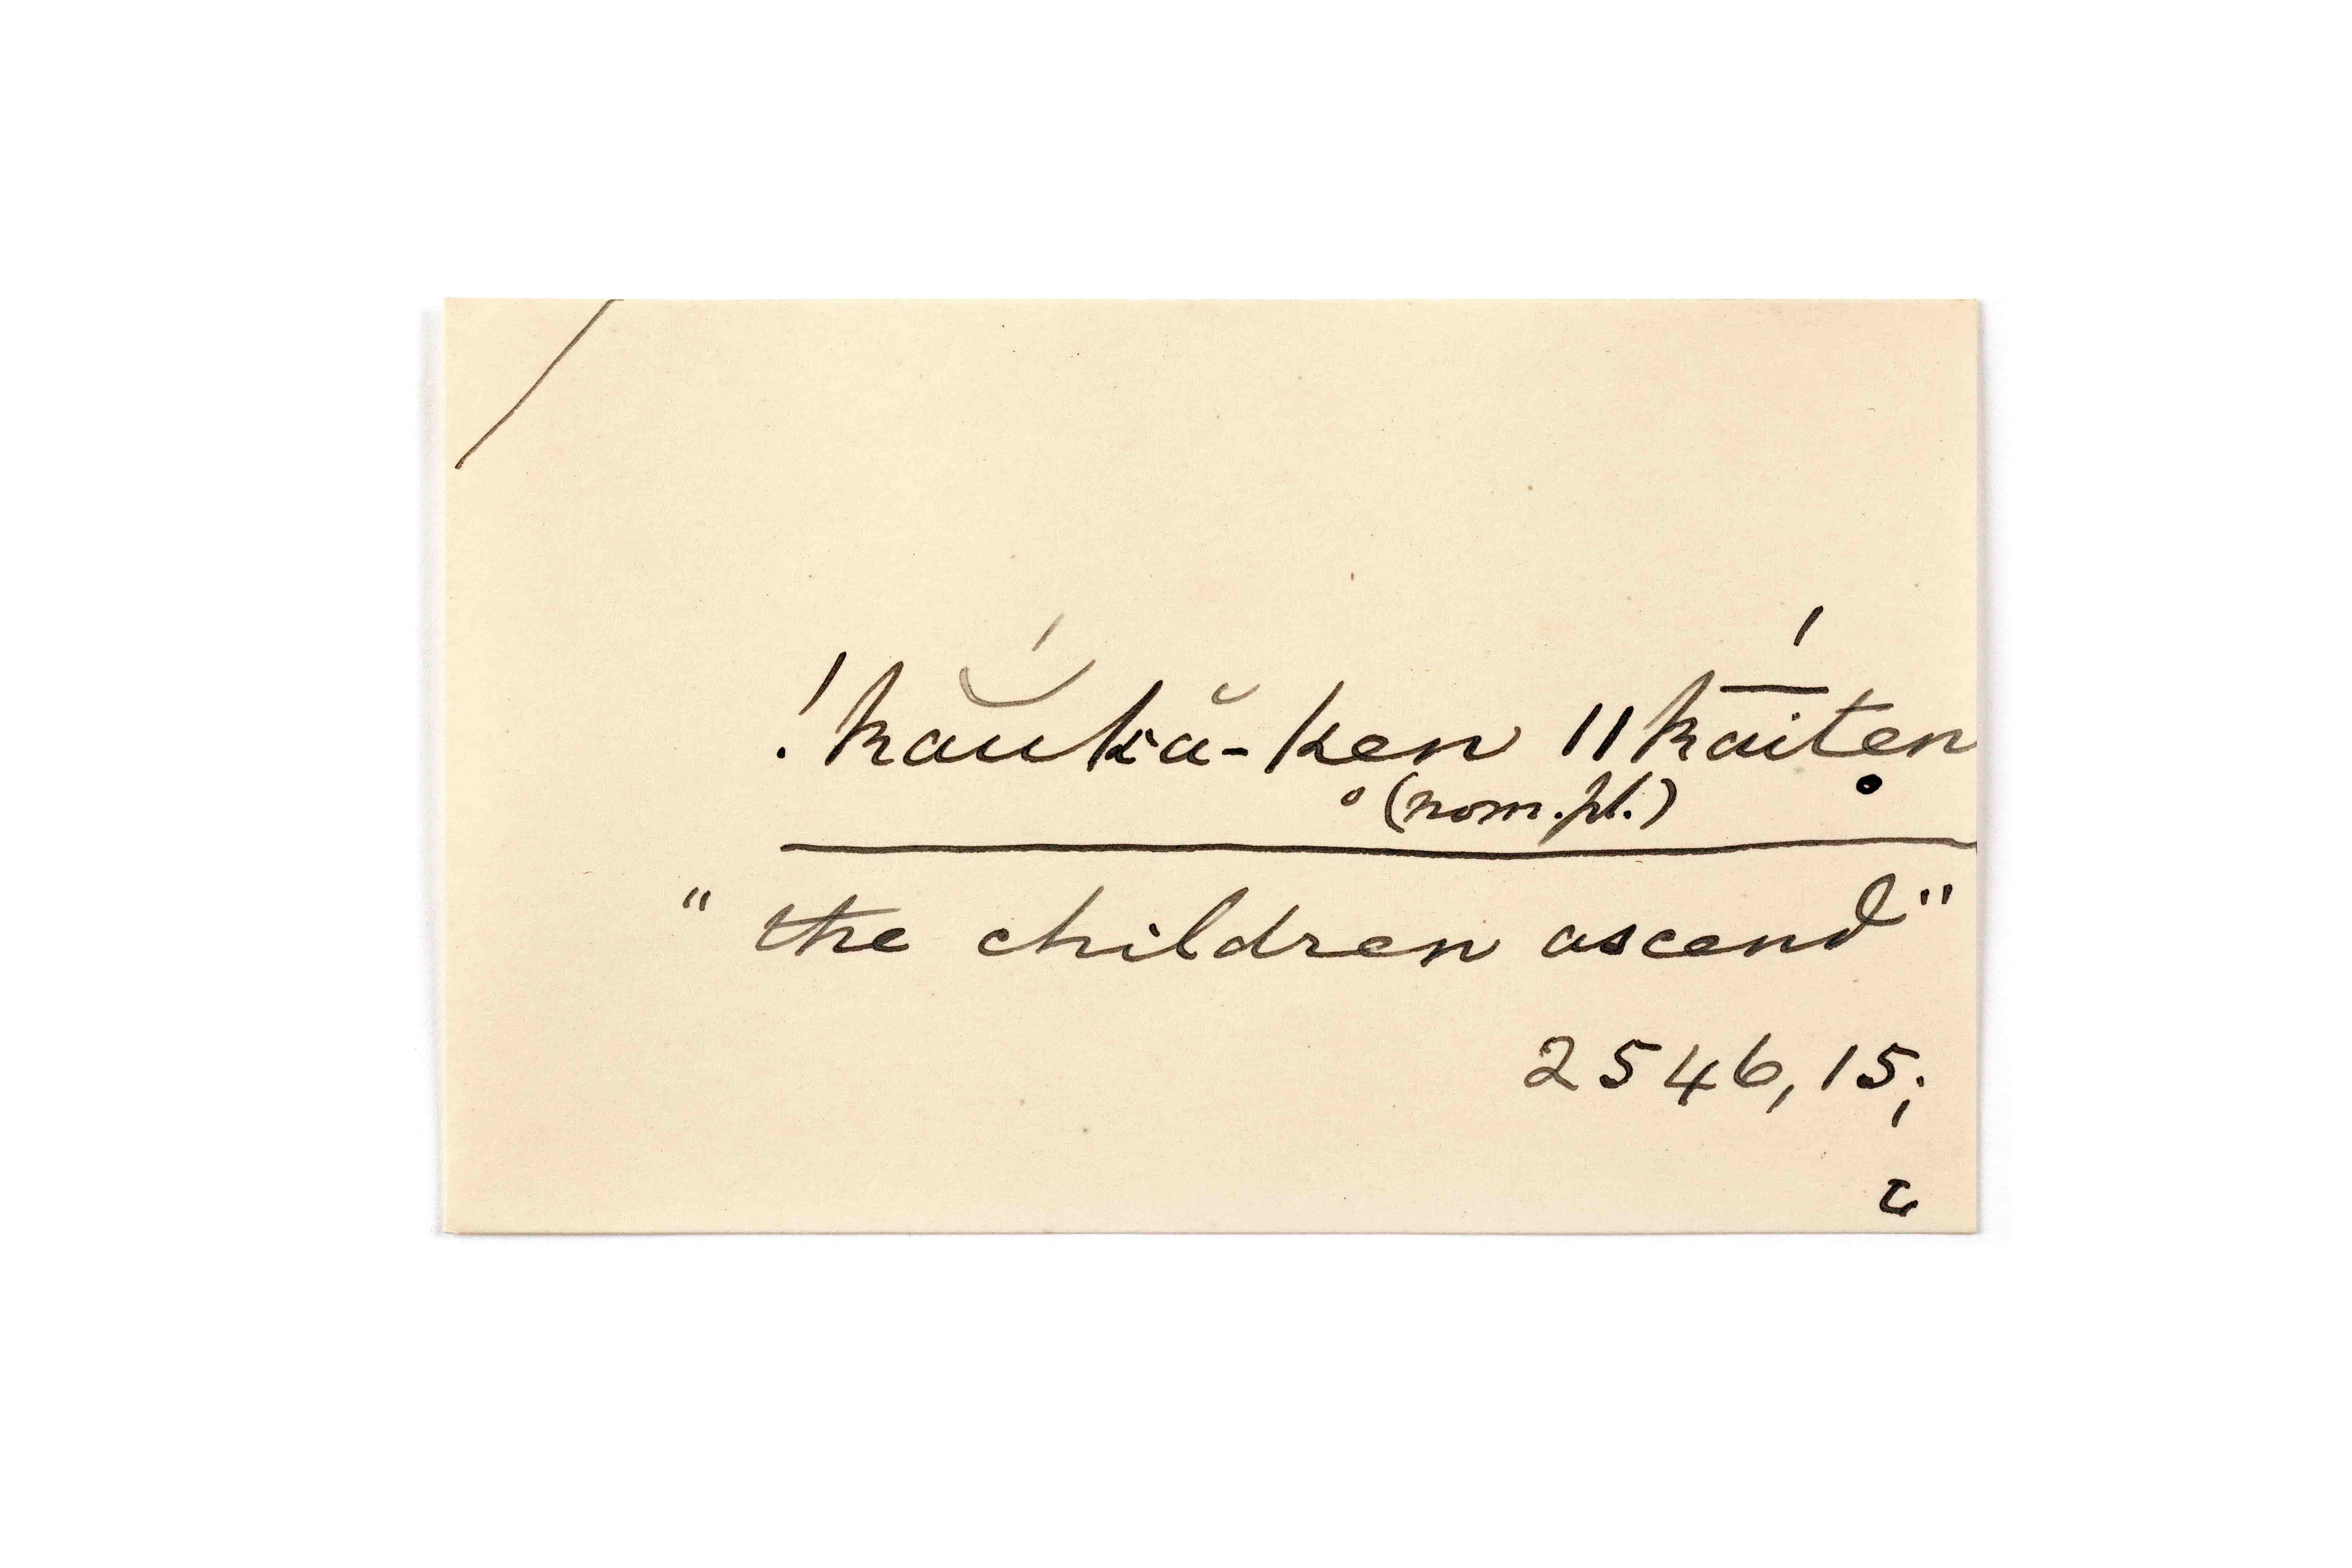 !ka̮úkă-ken ǁka͞íten
(nom. pl.)
"the children ascend"
2546, 15;
c